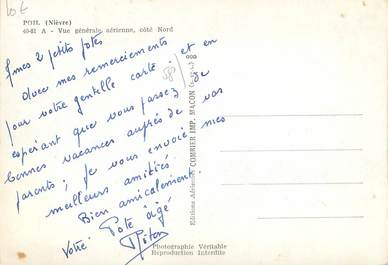 10€
POIL (Nièvre)
40-81 A - Vue générale aérienne, côté Nord
mes 2 petits potes
Avec mes remerciements et en
pour votre gentille carte
espérant que vous passez de
bonnes vacances auprès de vos
parents ; je vous envoie mes
meilleurs amitiés
Bien amicalement.
Pote âgé
Votre
Photographie Véritable
Reproduction Interdite
Editions Aériennes COMBIER IMP. MACON